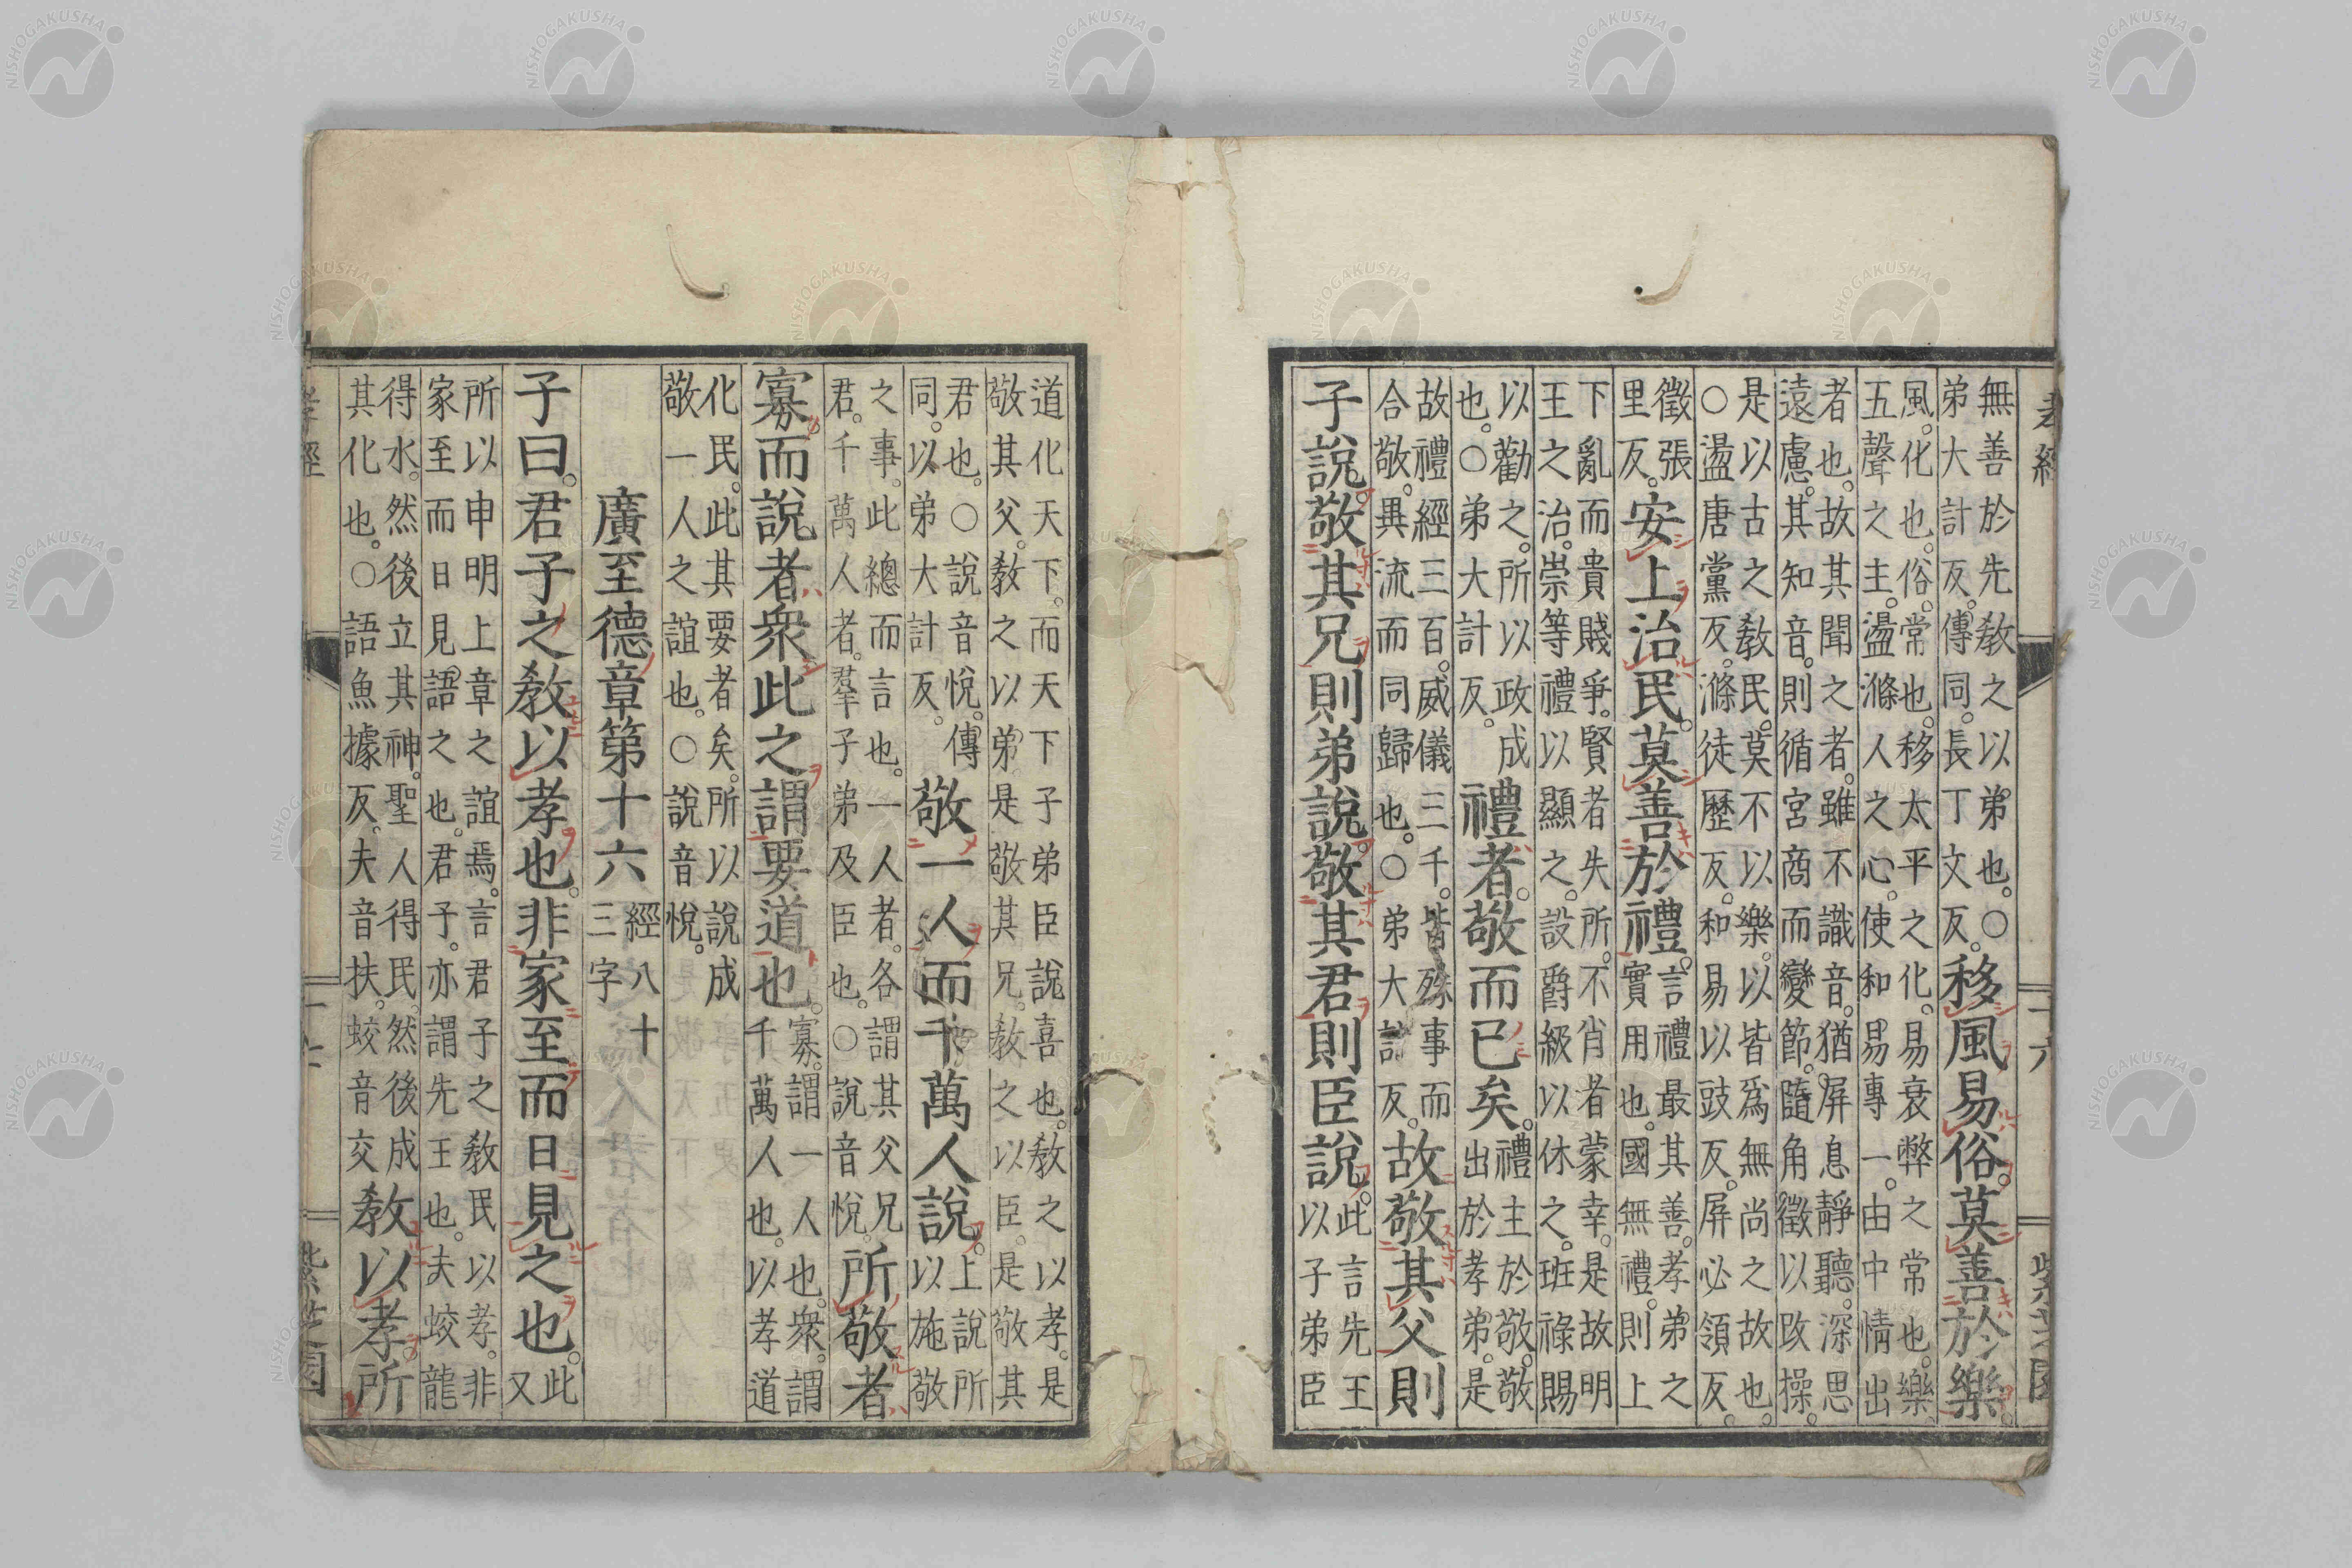 孝經
十六
無善於先教之以弟也。○
弟大計反。傳同。長丁文反。
移風易俗。莫善於樂。
風。化也。俗。常也。移太平之化。易衰弊之常也。樂。
五聲之主。盪滌人之心。使和易專一。由中情出
者也。故其聞之者。雖不識音。猶屏息靜聽。深思
遠慮。其知音。則循宮商而變節。隨角徵以改操。
是以古之教民。莫不以樂。以皆爲無尚之故也。
○盪唐黨反。滌徒歷反。和易以豉反。屏必領反。
徵張
里反。
安上治民。莫善於禮。
言禮最其善。孝弟之
實用也。國無禮。則上
下亂而貴賤爭。賢者失所。不肖者蒙幸。是故明
王之治。崇等禮以顯之。設爵級以休之。班祿賜
以勸之。所以政成
也。○弟大計反。
禮者。敬而已矣。
禮主於敬。敬
出於孝弟。是
故禮經三百。威儀三千。皆殊事而
合敬。異流而同歸也。○弟大計反。
故敬其父則
子說。敬其兄則弟說。敬其君則臣說。
此言先王
以子弟臣
道化天下。而天下子弟臣說喜也。教之以孝。是
敬其父。教之以弟。是敬其兄。教之以臣。是敬其
君也。○說音悅。傳
同。以弟大計反。
敬一人而千萬人說。
上說所
以施敬
之事。此總而言也。一人者。各謂其父兄
君。千萬人者。羣子弟及臣也。○說音悅。
所敬者
寡而說者衆此之謂要道也。
寡。謂一人也。衆。謂
千萬人也。以孝道
化民。此其要者矣。所以說成
敬一人之誼也。○說音悅。
廣至德章第十六
經八十
三字
子曰。君子之教以孝也。非家至而日見之也。
此
又
所以申明上章之誼焉。言君子之教民以孝。非
家至而日見語之也。君子。亦謂先王也。夫蛟龍
得水。然後立其神。聖人得民。然後成
其化也。○語魚據反。夫音扶。蛟音交
教以孝所